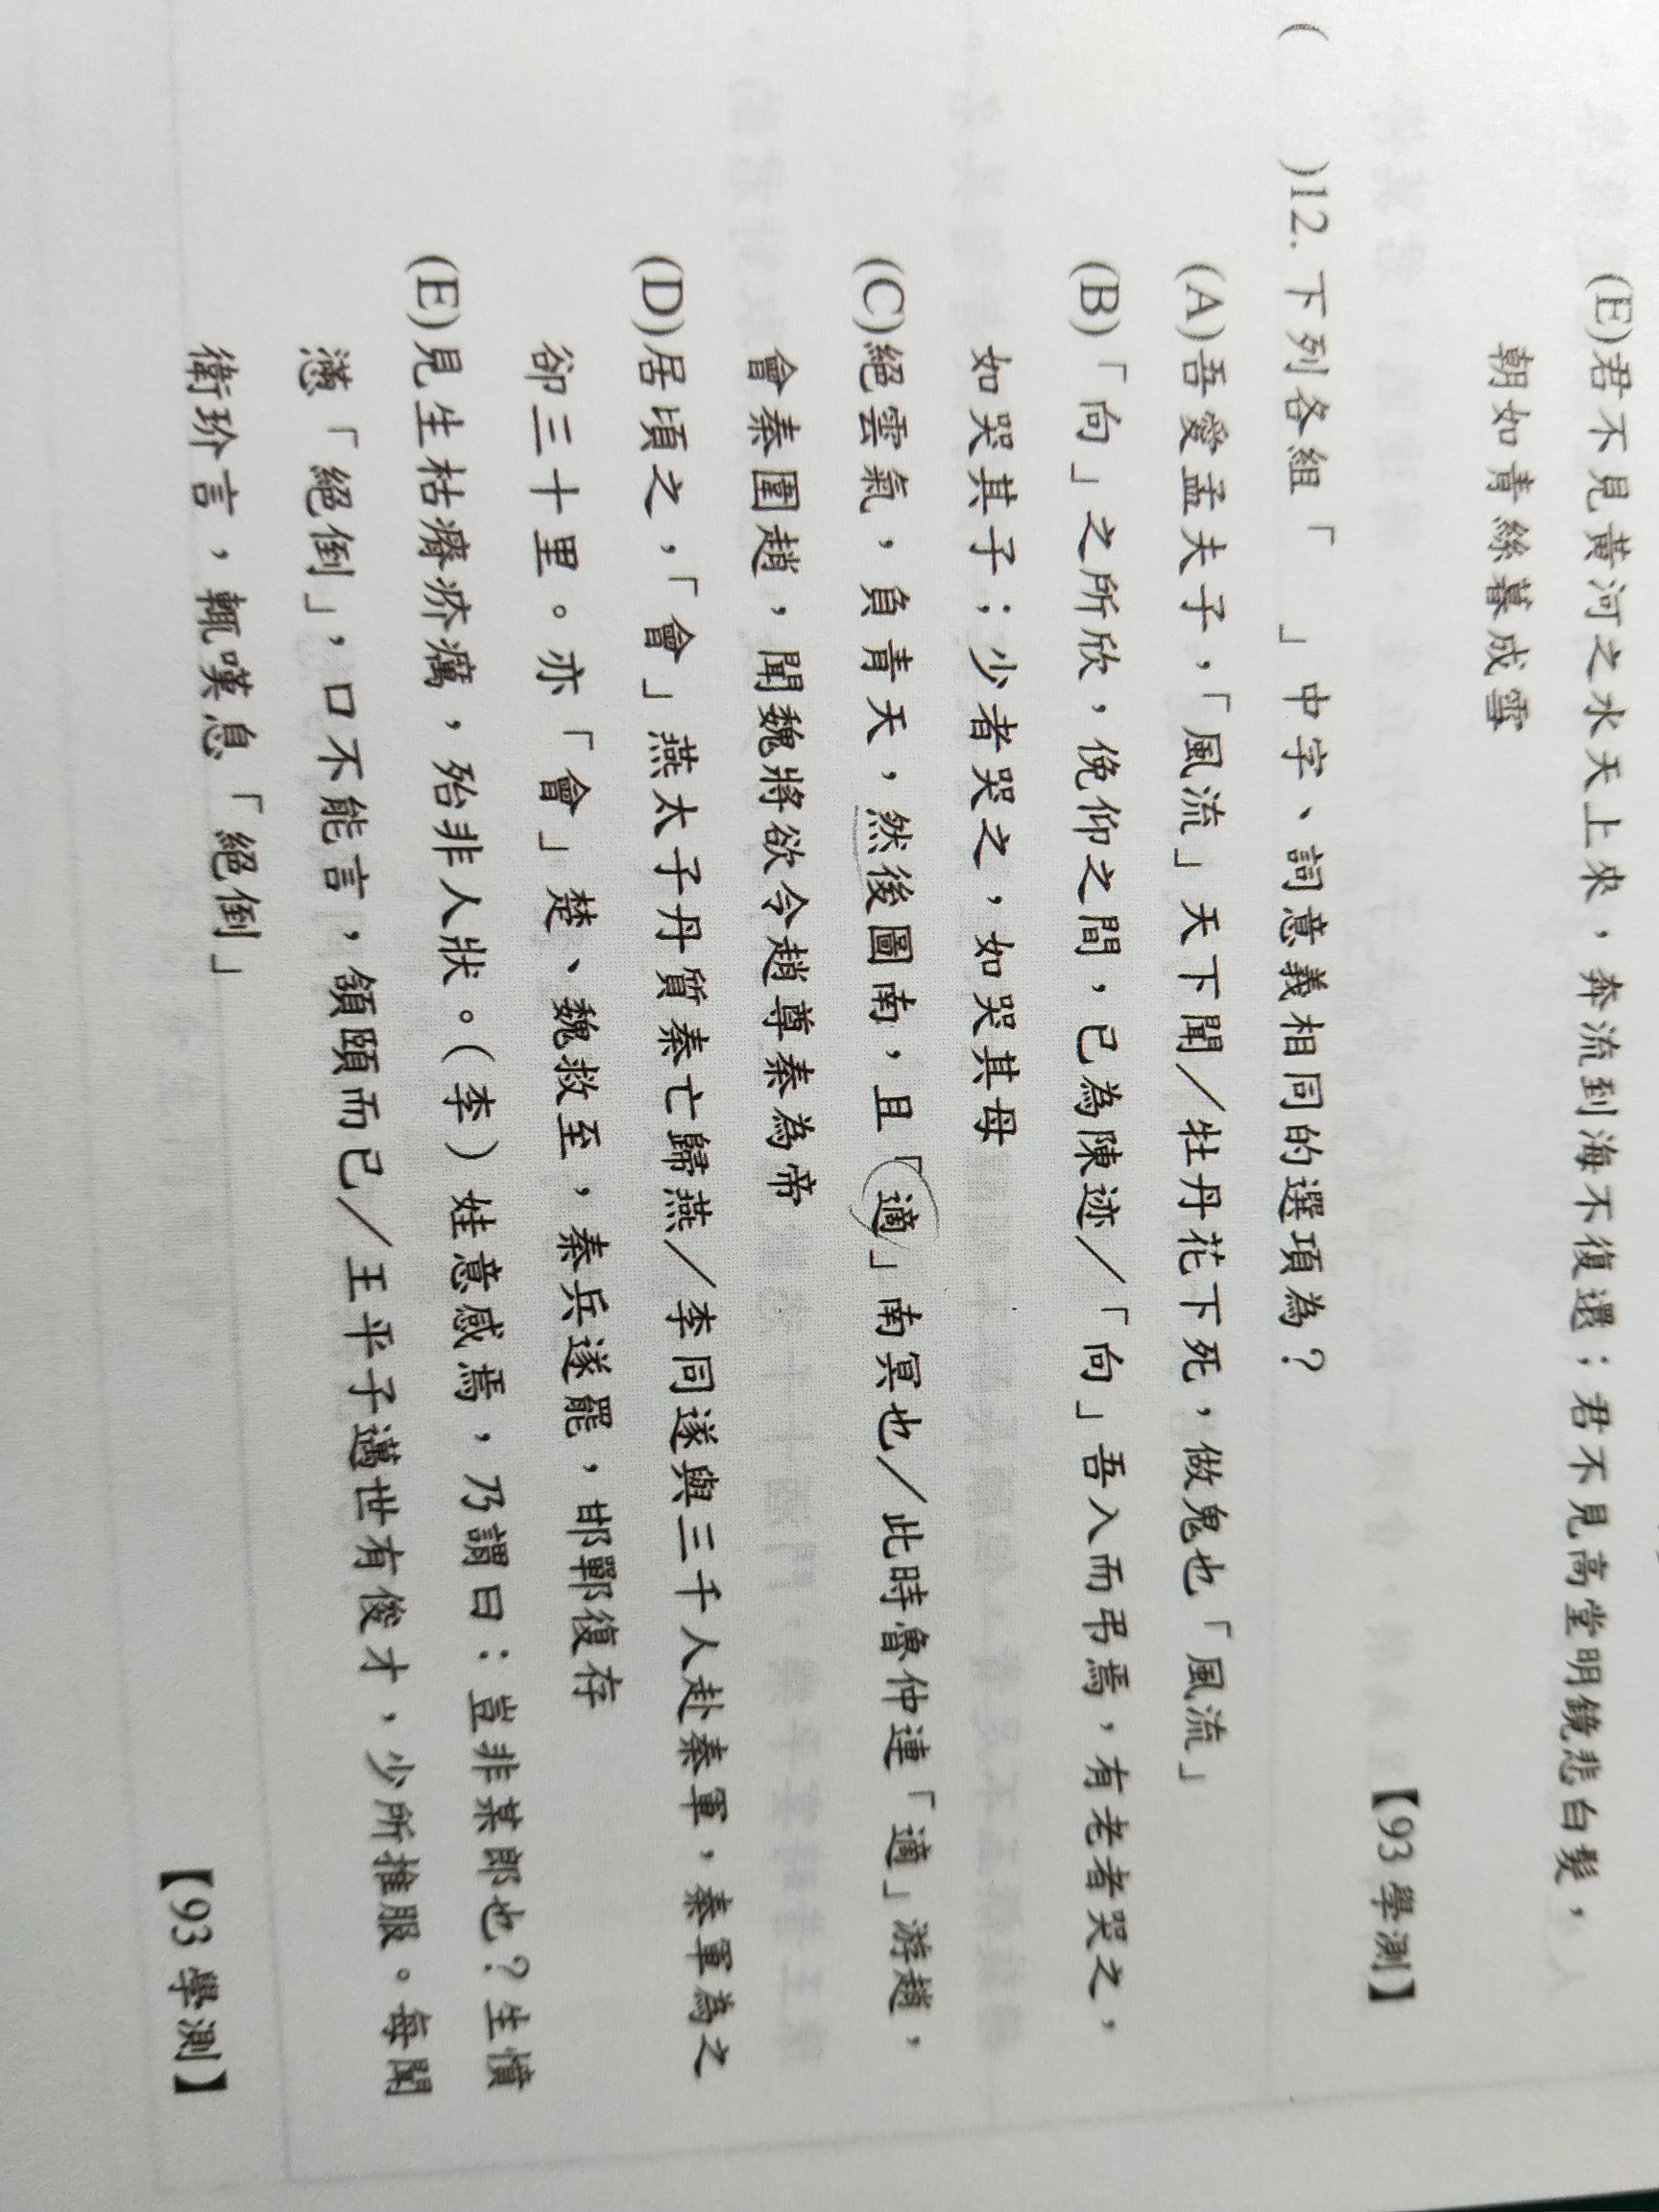 (E)君不見黃河之水天上來，奔流到海不復還；君不見高堂明鏡悲白髮，
朝如青絲暮成雪
【93 學測】
(　)12. 下列各組「　」中字、詞意義相同的選項為？
(A)吾愛孟夫子，「風流」天下聞／牡丹花下死，做鬼也「風流」
(B)「向」之所欣，俛仰之間，已為陳迹／「向」吾入而弔焉，有老者哭之，
如哭其子；少者哭之，如哭其母
(C)絕雲氣，負青天，然後圖南，且「適」南冥也／此時魯仲連「適」游趙，
會秦圍趙，聞魏將欲令趙尊秦為帝
(D)居頃之，「會」燕太子丹質秦亡歸燕／李同遂與三千人赴秦軍，秦軍為之
卻三十里。亦「會」楚、魏救至，秦兵遂罷，邯鄲復存
(E)見生枯瘠疥癘，殆非人狀。（李）娃意感焉，乃謂曰：豈非某郎也？生憤
懣「絕倒」，口不能言，頷頤而已／王平子邁世有俊才，少所推服。每聞
衛玠言，輒嘆息「絕倒」
【93 學測】